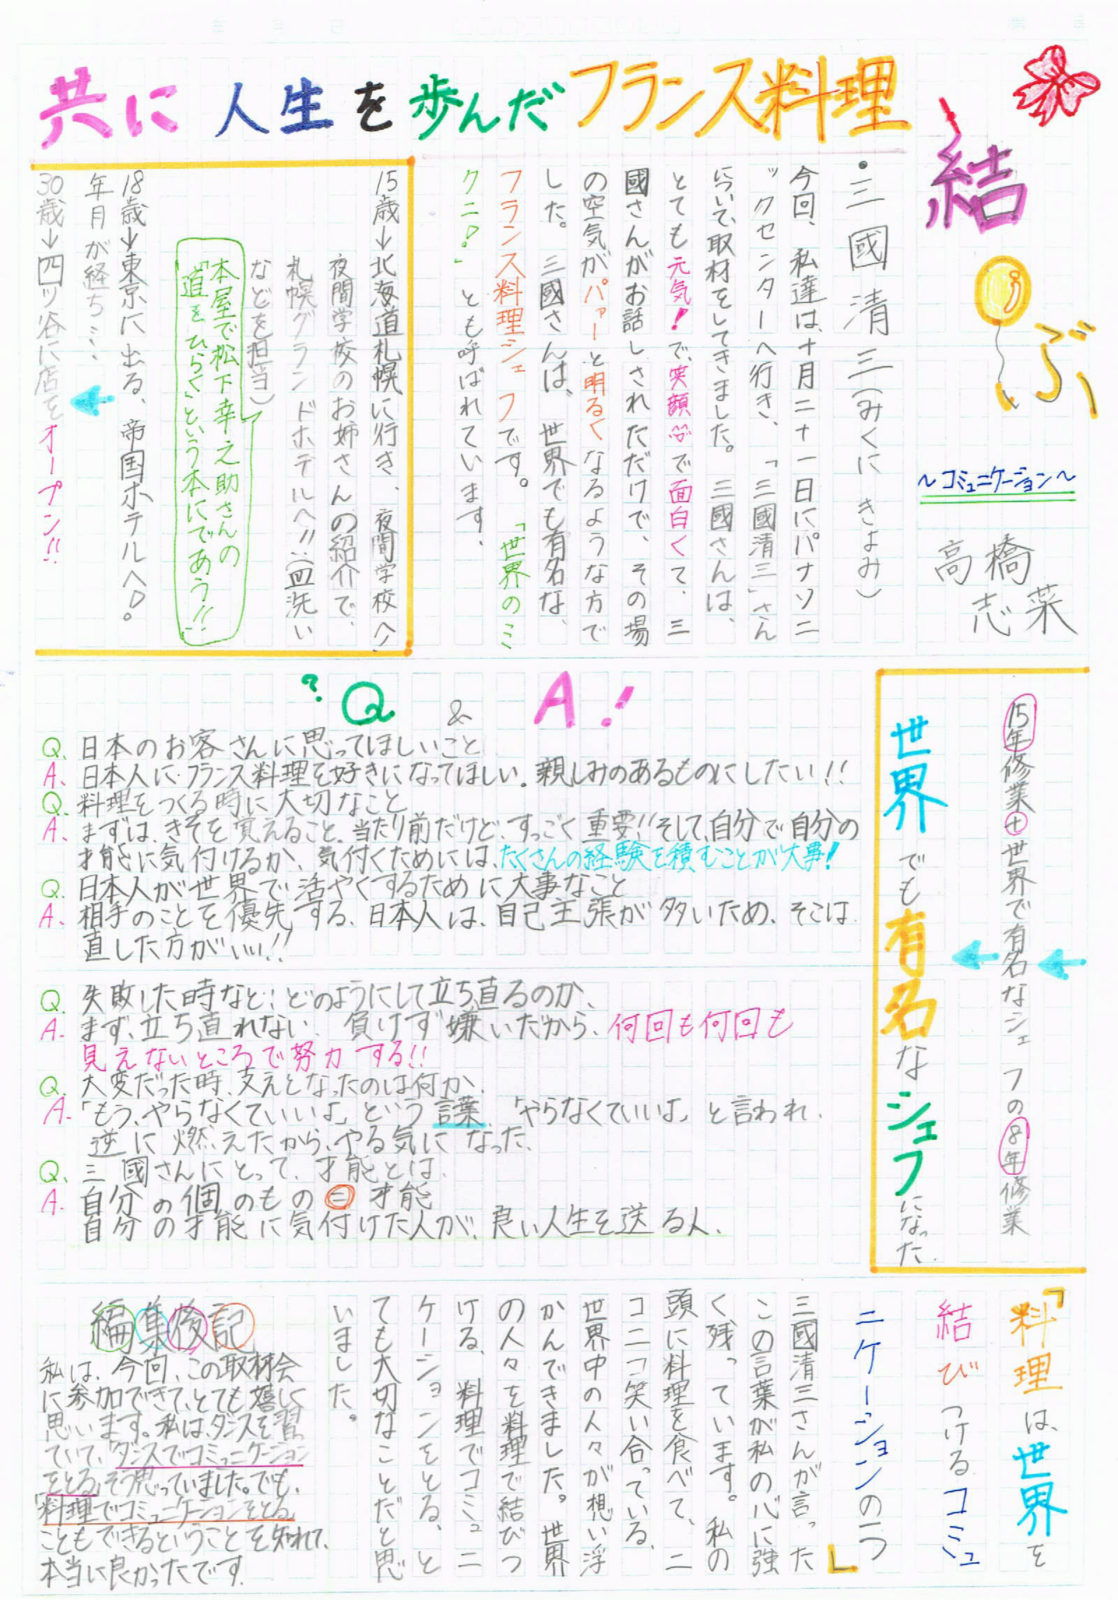 共に人生を歩んだフランス料理
結ぶ
～コミュニケーション～
高橋
志菜
・三國清三(みくに きよみ)
今回、私達は、十月二十一日にパナソニ
ックセンターへ行き、「三國清三」さん
について、取材をしてきました。三國さんは、
とても元気!で、笑顔で面白くて、三
國さんがお話しされただけで、その場
の空気がパァーと明るくなるような方で
した。三國さんは、世界でも有名な、
フランス料理シェフです。「世界のミ
クニ!」とも呼ばれています。
15歳→北海道札幌に行き、夜間学校へ!
夜間学校のお姉さんの紹介で、
札幌グランドホテルへ!!(皿洗い
などを担当)
本屋で松下幸之助さんの
「道をひらく」という本にであう!!
18歳→東京に出る、帝国ホテルへ!。
年月が経ち…
30歳→四ツ谷に店をオープン!!
15年修業＋世界で有名なシェフの8年修業
世界でも有名なシェフになった.
? Q & A!
Q. 日本のお客さんに思ってほしいこと
A. 日本人に、フランス料理を好きになってほしい。親しみのあるものにしたい!!
Q. 料理をつくる時に大切なこと
A. まずは、きそを覚えること。当たり前だけど、すっごく重要!!そして、自分で自分の
才能に気付けるか、気付くためには、たくさんの経験を積むことが大事!
Q. 日本人が世界で活やくするために大事なこと
A. 相手のことを優先する、日本人は、自己主張が多いため、そこは
直した方がいい!!
Q. 失敗した時など、どのようにして立ち直るのか、
A. まず、立ち直れない 負けず嫌いだから、何回も何回も
見えないところで努力する!!
Q. 大変だった時、支えとなったのは何か、
A. 「もう、やらなくていいよ」という言葉「やらなくていいよ」と言われ、
逆に燃えたから、やる気になった、
Q. 三國さんにとって、才能とは、
A. 自分の個のもの＝才能
自分の才能に気付けた人が、良い人生を送る人.
「料理は、世界を
結びつけるコミュ
ニケーションの一つ」
三國清三さんが言った
この言葉が私の心に強
く残っています。私の
頭に料理を食べて、ニ
コニコ笑い合っている、
世界中の人々が想い浮
かんできました。世界
の人々を料理で結びつ
ける、料理でコミュニ
ケーションをとる、と
ても大切なことだと思
いました。
編集後記
私は、今回、この取材会
に参加できて、とても嬉しく
思います。私は、ダンスを習
ていて、「ダンスでコミュニケーション
をとる」そう思っていました。でも、
「料理でコミュニケーションをとる」
こともできるということを知れて、
本当に良かったです.